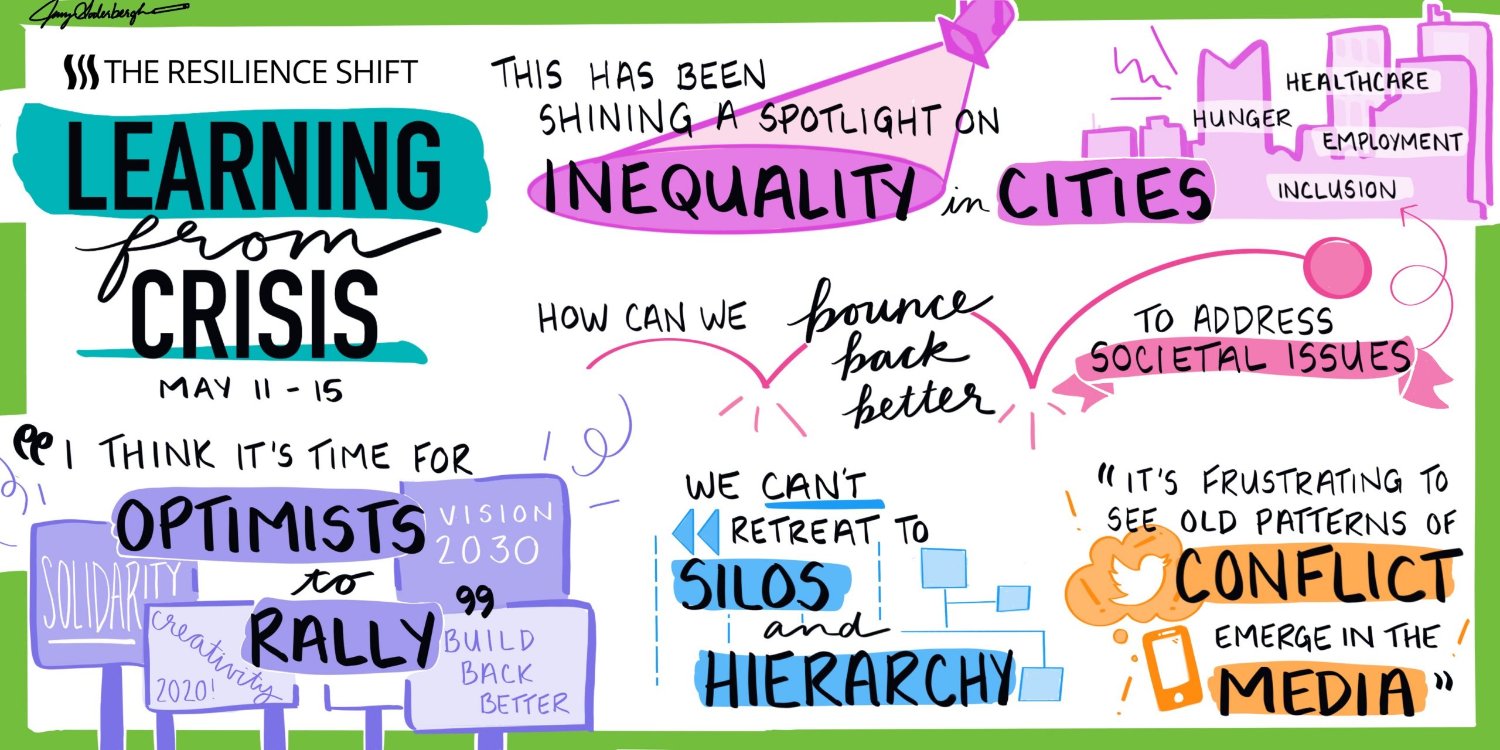 THE RESILIENCE SHIFT
LEARNING
from
CRISIS
MAY 11 - 15
THIS HAS BEEN
SHINING A SPOTLIGHT ON
INEQUALITY in CITIES
HEALTHCARE
HUNGER
EMPLOYMENT
INCLUSION
HOW CAN WE
bounce
back
better
TO ADDRESS
SOCIETAL ISSUES
“I THINK IT'S TIME FOR
OPTIMISTS
to
RALLY”
SOLIDARITY
creativity
2020!
VISION
2030
BUILD
BACK
BETTER
WE CAN'T
RETREAT TO
SILOS
and
HIERARCHY
“IT'S FRUSTRATING TO
SEE OLD PATTERNS OF
CONFLICT
EMERGE IN THE
MEDIA”